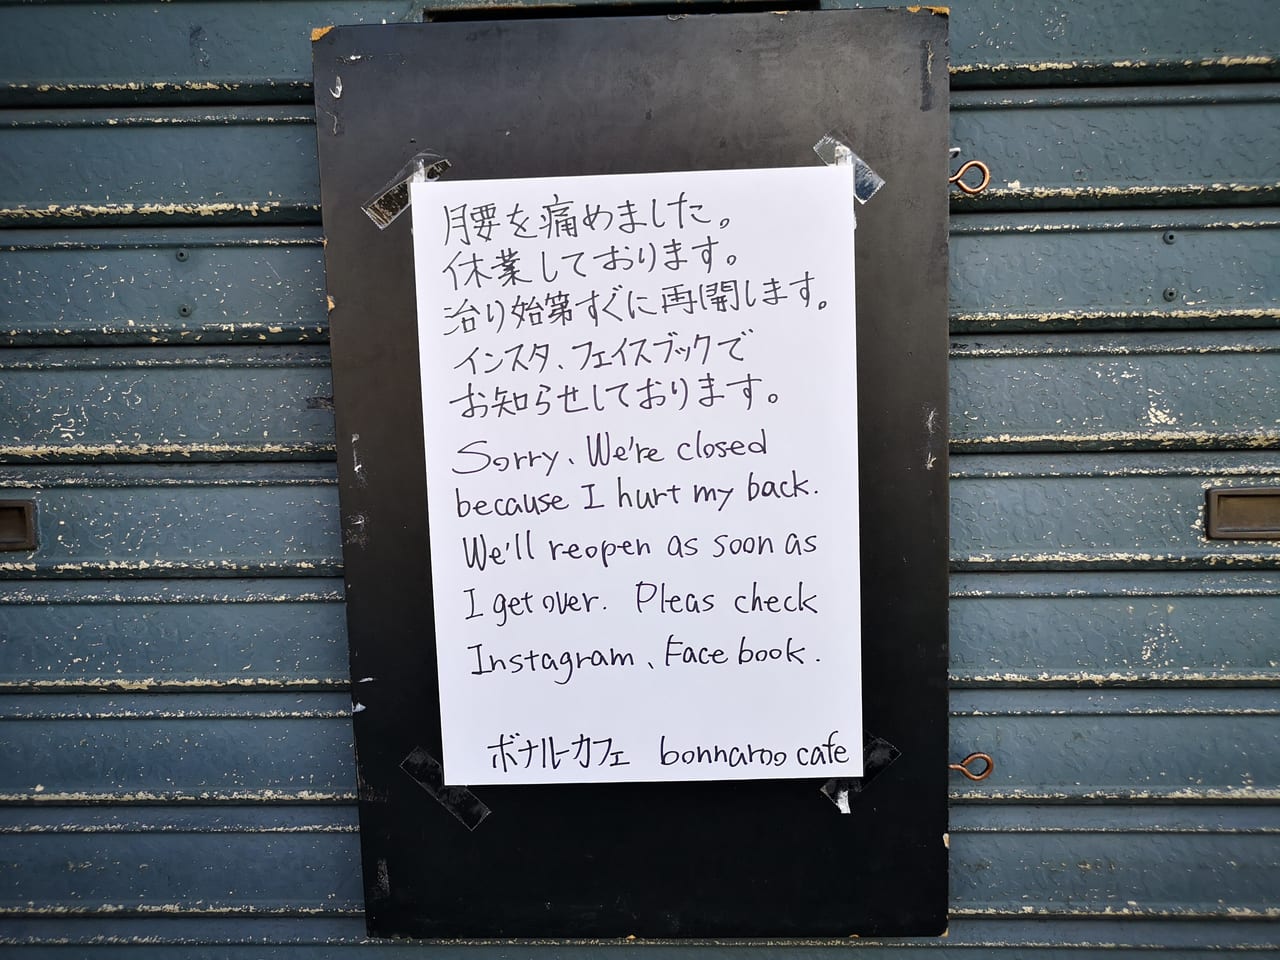 腰を痛めました。
休業しております。
治り始第すぐに再開します。
インスタ、フェイスブックで
お知らせしております。
Sorry、We're closed
because I hurt my back.
We'll reopen as soon as
I get over. Pleas check
Instagram、Face book.
ボナルーカフェ bonnaroo cafe